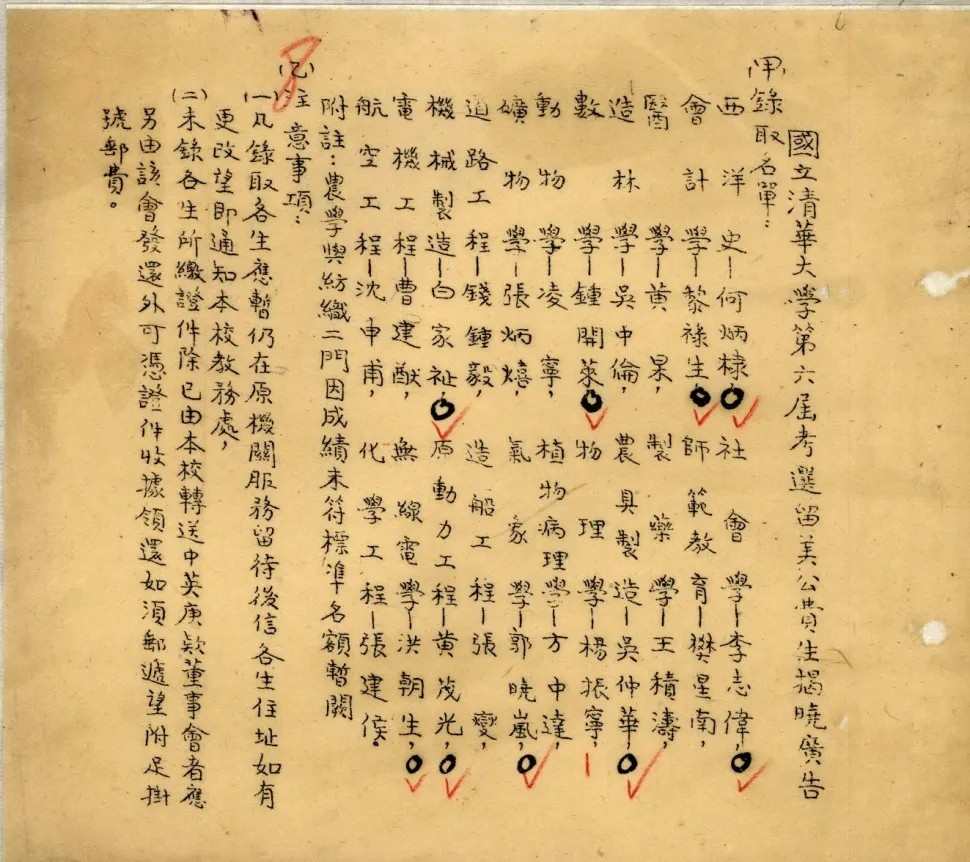 國立清華大學第六屆考選留美公費生揭曉廣告
(甲)錄取名單：
西洋史—何炳棣，社會學—李志偉，
會計學—黎祿生，師範教育—樊星南，
醫學—黃杲，製藥學—王積濤，
造林學—吳中倫，農具製造—吳仲華，
數學—鍾開萊，物理學—楊振寧，
動物學—凌寧，植物病理學—方中達，
礦物學—張炳熺，氣象學—郭曉嵐，
道路工程—錢鍾毅，造船工程—張燮，
機械製造—白家祉，原動力工程—黃茂光，
電機工程—曹建猷，無線電學—洪朝生，
航空工程—沈申甫，化學工程—張建侯。
附註：農學與紡織二門因成績未符標準名額暫闕
(乙)注意事項：
(一)凡錄取各生應暫仍在原機關服務留待後信各生住址如有
更改望即通知本校教務處，
(二)未錄各生所繳證件除已由本校轉送中英庚款董事會者應
另由該會發還外可憑證件收據領還如須郵遞望附足掛
號郵費。